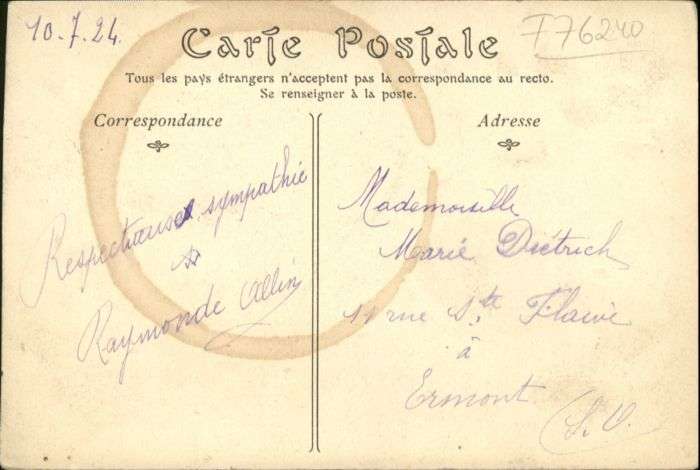 10.7.24.
Carte Postale
T76240
Tous les pays étrangers n'acceptent pas la correspondance au recto.
Se renseigner à la poste.
Correspondance
Adresse
Respectueuse sympathie
Raymonde Ollin
Mademoiselle
Marie Diétrich
11 rue Ste Flaive
à
Ermont
(S. O.)